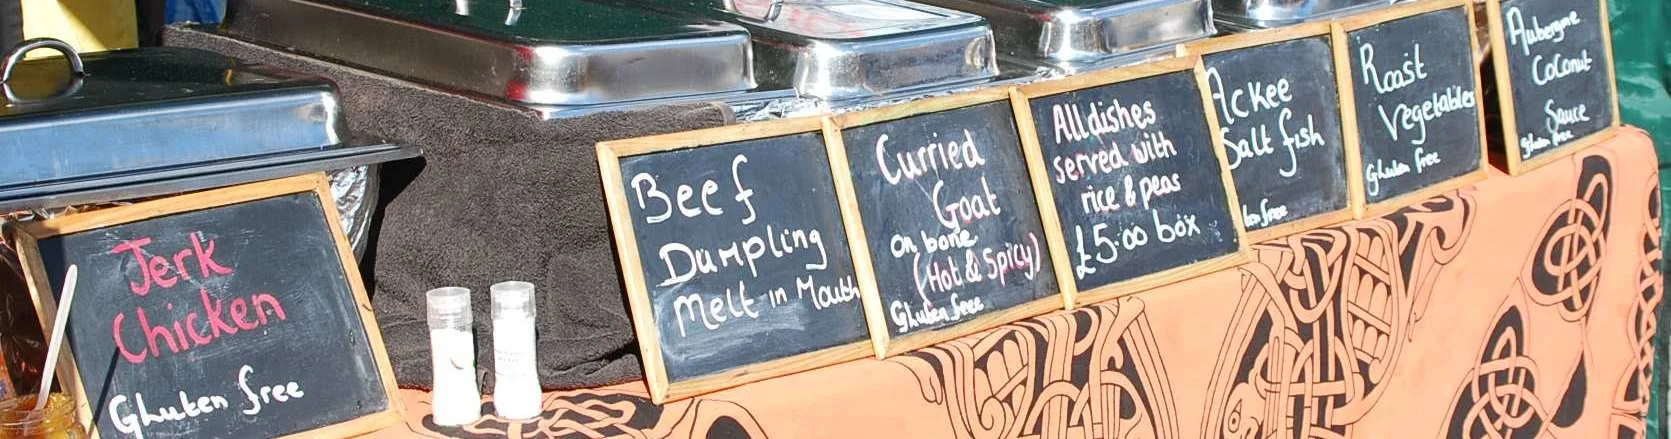 Jerk
Chicken
Gluten free
Beef
Dumpling
Melt in Mouth
Curried
Goat
on bone
(Hot & Spicy)
Gluten free
All dishes
served with
rice & peas
£5.00 box
Ackee
Salt fish
free
Roast
Vegetables
Gluten free
Aubergine
Coconut
Sauce
Gluten free